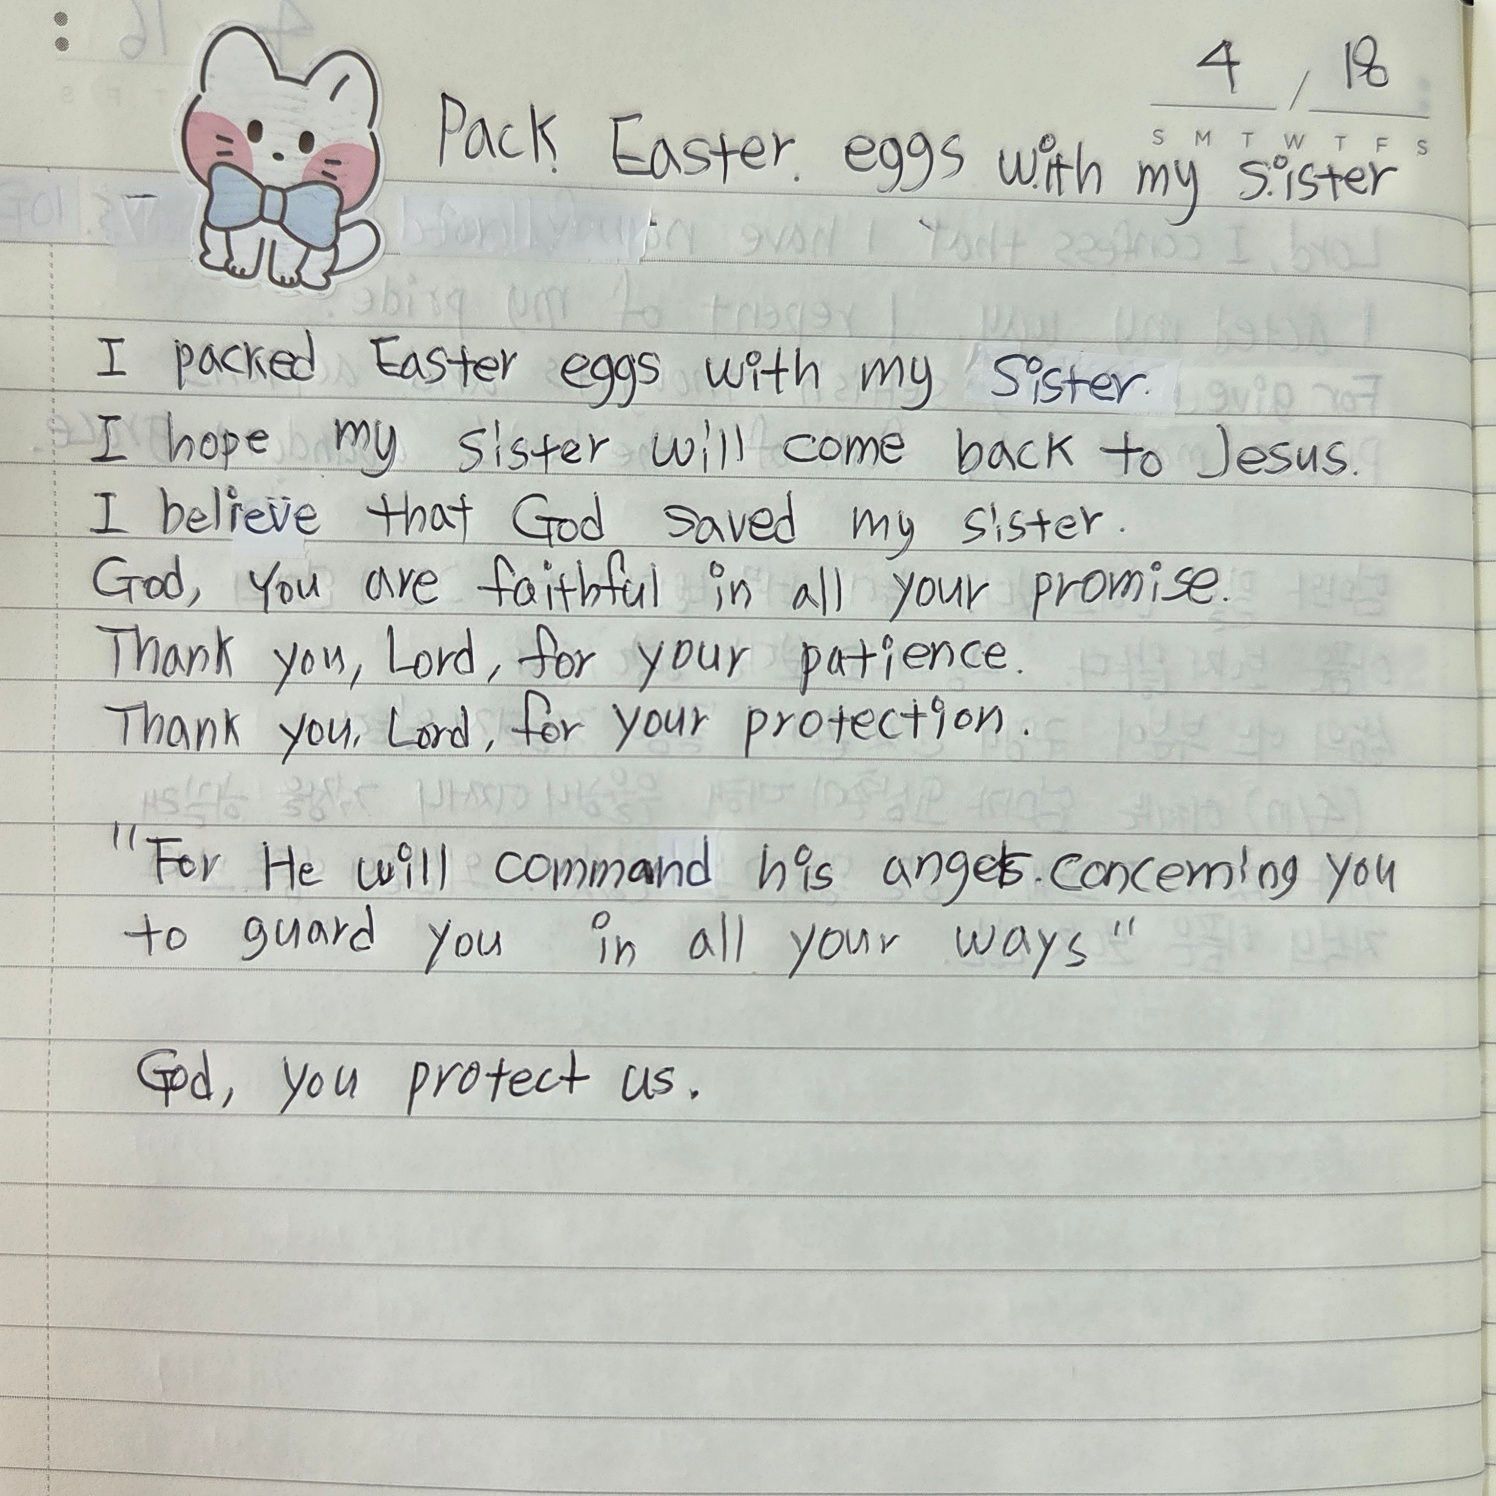 4 / 18
S M T W T F S
Pack Easter. eggs with my sister
I packed Easter eggs with my Sister.
I hope my sister will come back to Jesus.
I believe that God saved my sister.
God, you are faithful in all your promise.
Thank you, Lord, for your patience.
Thank you, Lord, for your protection.
"For He will command his angels. concerning you
to guard you in all your ways"
God, you protect us.